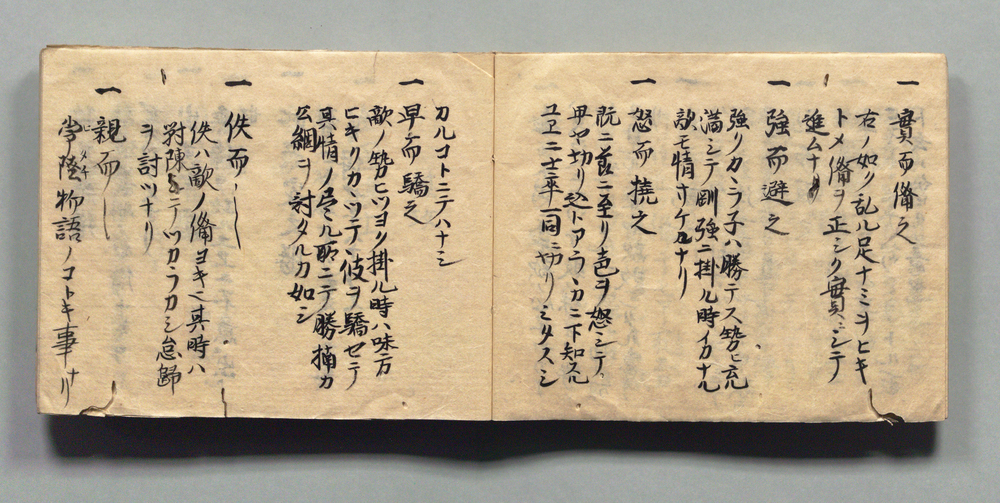 一 實而備之
右ノ如ク乱ル足ナミヲヒキ
トメ備ヲ正シク實ニシテ
進ムナリ
一 強而避之
強リカラ子ハ勝テス勢ヒ充
満シテ剛強ニ掛ル時イカナル
訳モ情ナケルナリ
一 怒而撓之
既ニ 至リ色ヲ怒ニシテ
早ヤ切リ込トアラハカニ下知スル
ユヱニ士卒一同ニ切リミタスシ
カルコトニテハナシ
一 早而驕之
敵ノ勢ヒツヨク掛ル時ハ味方
ヒキリカツテ彼ヲ驕セテ
其情ノ尽ル所ニテ勝
公綱ヲ討タルカ如シ
一 佚而〡
佚ハ敵ノ備ヨキニ其時ハ
對陳シテツカラカシ怠歸
ヲ討ツナリ
一 親而〡
常陸物語ノコトキ事ナリ